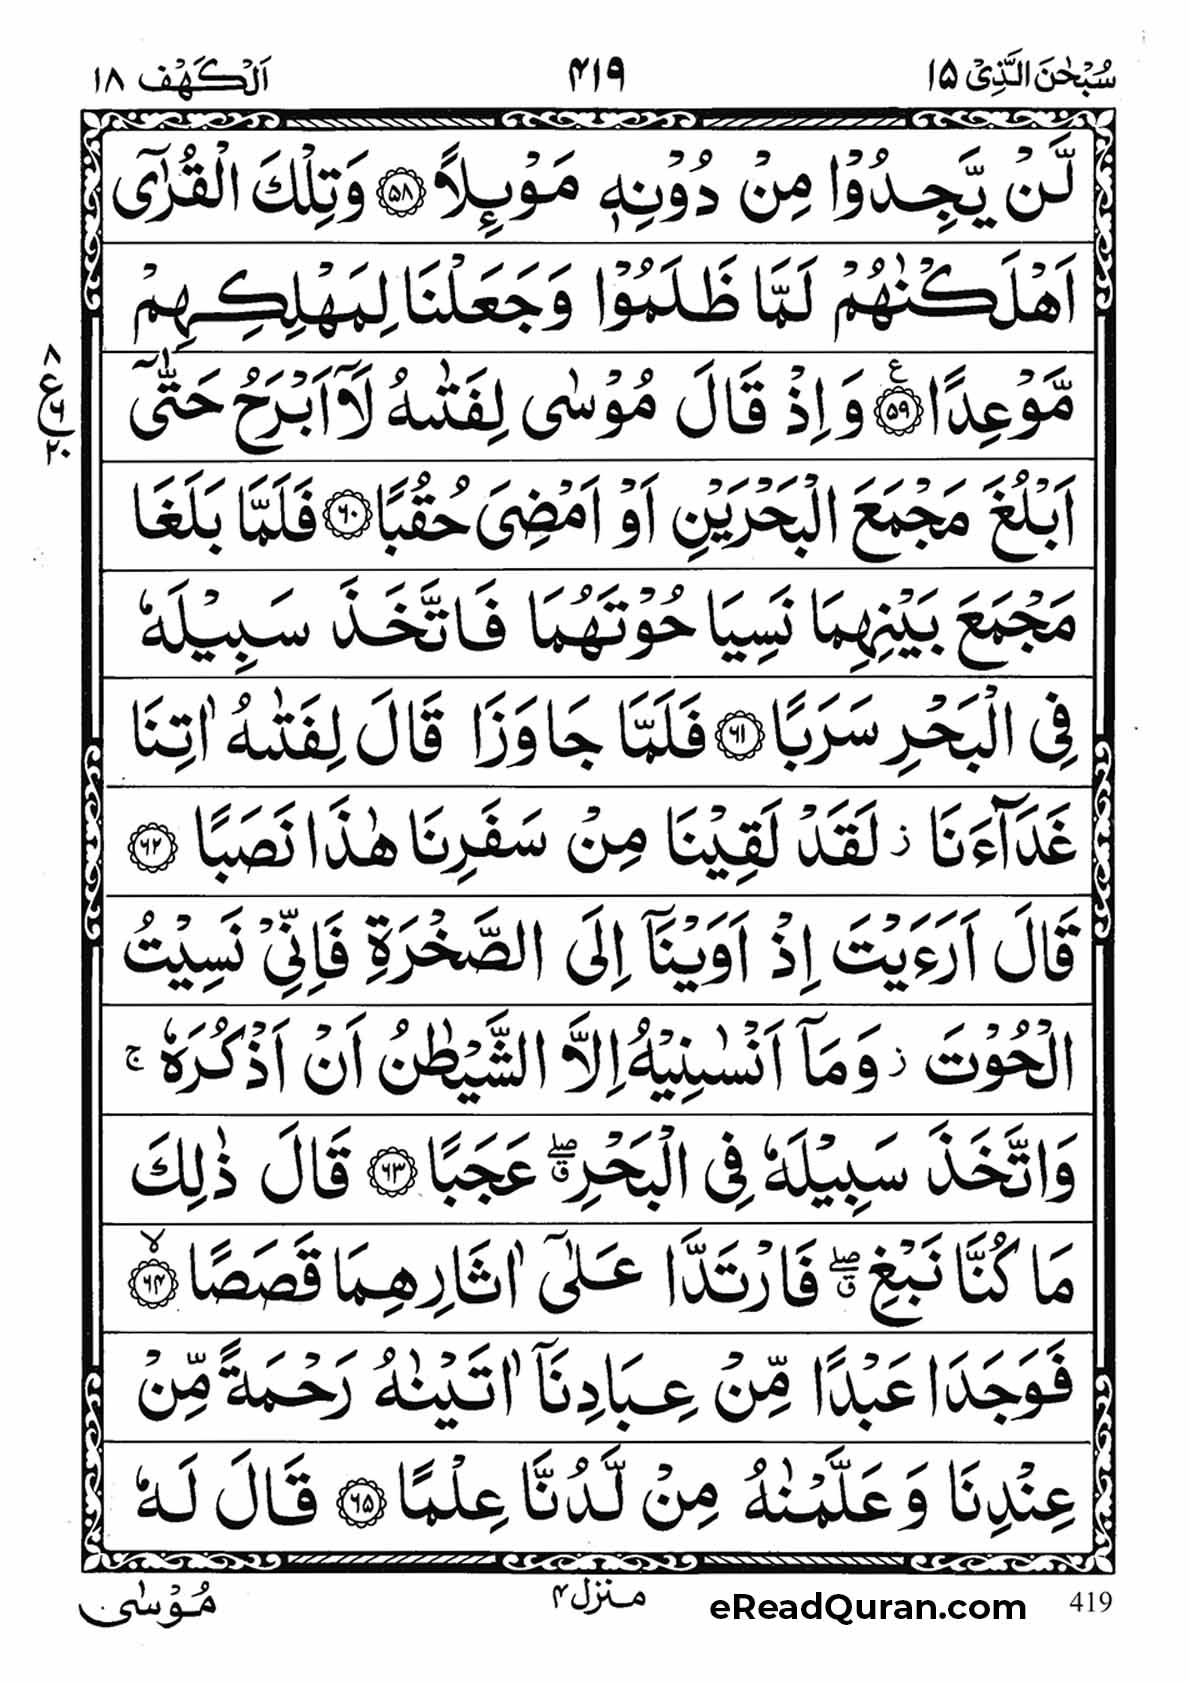 سُبْحٰنَ الَّذِیْ ۱۵
۴۱۹
اَلْكَهْف ۱۸
لَّنْ یَّجِدُوْا مِنْ دُوْنِهٖ مَوْىِٕلًا ۝۵۸ وَتِلْكَ الْقُرٰۤى
اَهْلَكْنٰهُمْ لَمَّا ظَلَمُوْا وَجَعَلْنَا لِمَهْلِكِهِمْ
مَّوْعِدًا ۝۵۹ ع وَاِذْ قَالَ مُوْسٰى لِفَتٰىهُ لَاۤ اَبْرَحُ حَتّٰۤى
۸ ع ۶ ۲۰
اَبْلُغَ مَجْمَعَ الْبَحْرَیْنِ اَوْ اَمْضِیَ حُقُبًا ۝۶۰ فَلَمَّا بَلَغَا
مَجْمَعَ بَیْنِهِمَا نَسِیَا حُوْتَهُمَا فَاتَّخَذَ سَبِیْلَهٗ
فِی الْبَحْرِ سَرَبًا ۝۶۱ فَلَمَّا جَاوَزَا قَالَ لِفَتٰىهُ اٰتِنَا
غَدَآءَنَا ز لَقَدْ لَقِیْنَا مِنْ سَفَرِنَا هٰذَا نَصَبًا ۝۶۲
قَالَ اَرَءَیْتَ اِذْ اَوَیْنَاۤ اِلَى الصَّخْرَةِ فَاِنِّیْ نَسِیْتُ
الْحُوْتَ ز وَمَاۤ اَنْسٰىنِیْهُ اِلَّا الشَّیْطٰنُ اَنْ اَذْكُرَهٗ ج
وَاتَّخَذَ سَبِیْلَهٗ فِی الْبَحْرِ ۖق عَجَبًا ۝۶۳ قَالَ ذٰلِكَ
مَا كُنَّا نَبْغِ ۖق فَارْتَدَّا عَلٰۤى اٰثَارِهِمَا قَصَصًا ۝۶۴ لا
فَوَجَدَا عَبْدًا مِّنْ عِبَادِنَاۤ اٰتَیْنٰهُ رَحْمَةً مِّنْ
عِنْدِنَا وَعَلَّمْنٰهُ مِنْ لَّدُنَّا عِلْمًا ۝۶۵ قَالَ لَهٗ
مُوْسٰى
منزل ۴
eReadQuran.com
419